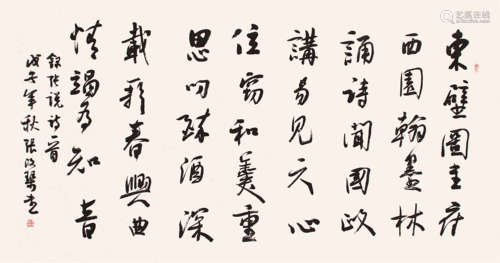 東壁圖書府
西園翰墨林
誦詩聞國政
講易見天心
位竊和羹重
恩叨醉酒深
載歌春興曲
情竭為知音
錄張說詩一首
戊子年秋張改琴書